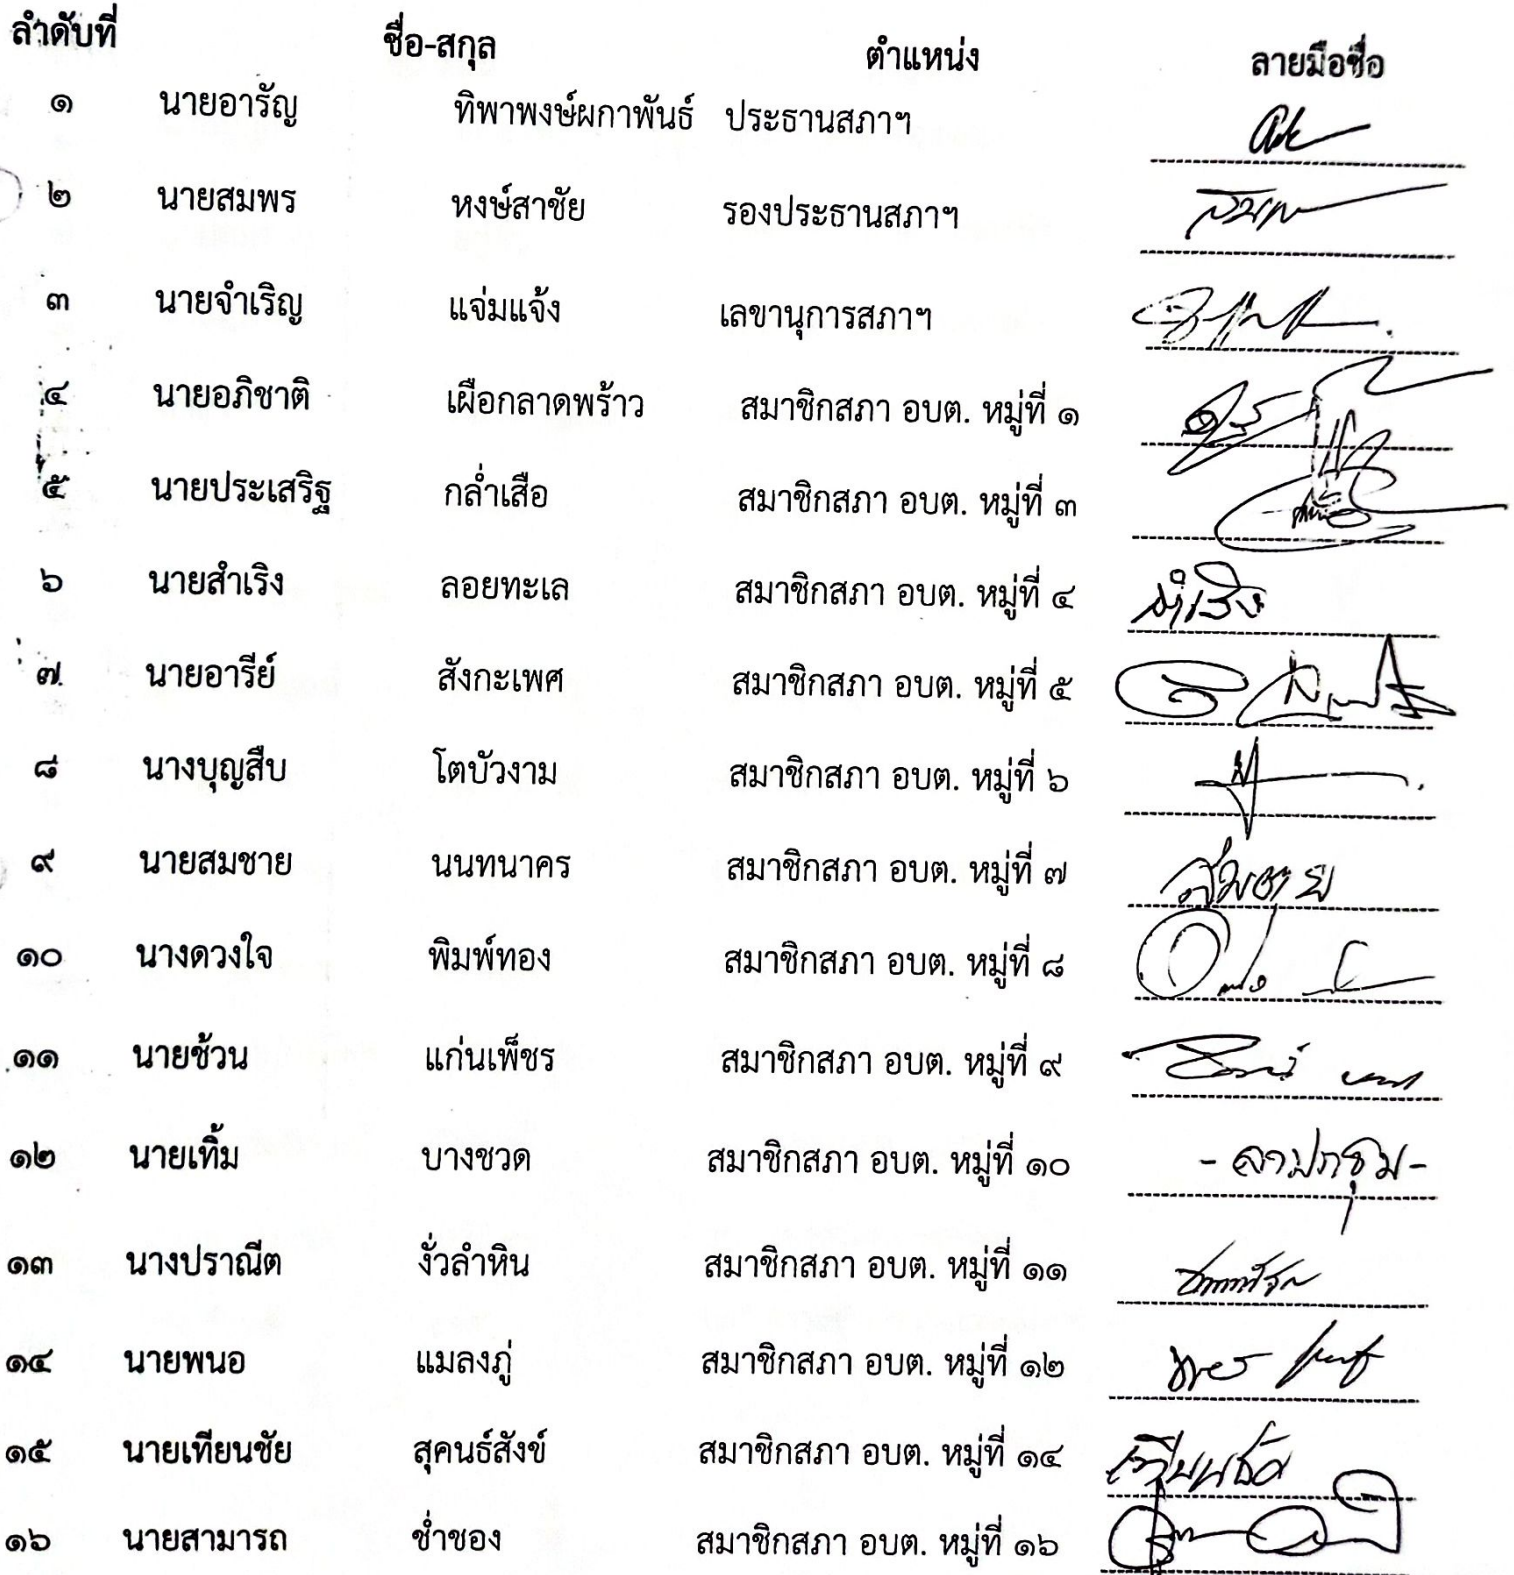 ลำดับที่ ชื่อ-สกุล ตำแหน่ง ลายมือชื่อ
๑ นายอารัญ ทิพาพงษ์ผกาพันธ์ ประธานสภาฯ
๒ นายสมพร หงษ์สาชัย รองประธานสภาฯ
๓ นายจำเริญ แจ่มแจ้ง เลขานุการสภาฯ
๔ นายอภิชาติ เผือกลาดพร้าว สมาชิกสภา อบต. หมู่ที่ ๑
๕ นายประเสริฐ กล่ำเสือ สมาชิกสภา อบต. หมู่ที่ ๓
๖ นายสำเริง ลอยทะเล สมาชิกสภา อบต. หมู่ที่ ๔ สำเริง
๗ นายอารีย์ สังกะเพศ สมาชิกสภา อบต. หมู่ที่ ๕
๘ นางบุญสืบ โตบัวงาม สมาชิกสภา อบต. หมู่ที่ ๖
๙ นายสมชาย นนทนาคร สมาชิกสภา อบต. หมู่ที่ ๗ สมชาย
๑๐ นางดวงใจ พิมพ์ทอง สมาชิกสภา อบต. หมู่ที่ ๘
๑๑ นายช้วน แก่นเพ็ชร สมาชิกสภา อบต. หมู่ที่ ๙
๑๒ นายเทิ้ม บางชวด สมาชิกสภา อบต. หมู่ที่ ๑๐ - ลาประชุม -
๑๓ นางปราณีต งั่วลำหิน สมาชิกสภา อบต. หมู่ที่ ๑๑
๑๔ นายพนอ แมลงภู่ สมาชิกสภา อบต. หมู่ที่ ๑๒
๑๕ นายเทียนชัย สุคนธ์สังข์ สมาชิกสภา อบต. หมู่ที่ ๑๔ เทียนชัย
๑๖ นายสามารถ ช่ำชอง สมาชิกสภา อบต. หมู่ที่ ๑๖